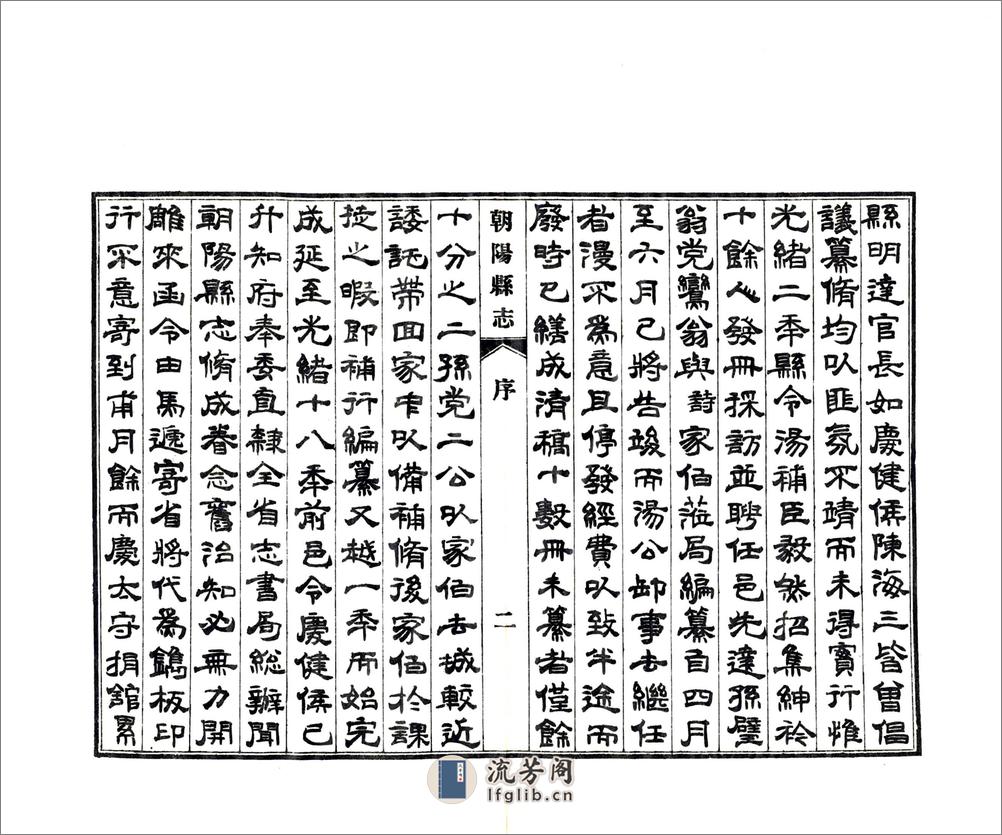 縣明達官長如慶健侯陳海三皆曾倡
議纂脩均以匪氛不靖而未得實行惟
光緒二年縣令湯補臣毅然招集紳衿
十餘人發冊採訪並聘任邑先達孫璧
翁党鸞翁與詩家伯蒞局編纂自四月
至六月已將告竣而湯公卸事去繼任
者漫不為意且停發經費以致半途而
廢時已繕成清稿十數冊未纂者僅餘
朝陽縣志
序
二
十分之二孫党二公以家伯去城較近
諉託帶回家中以備補脩後家伯於課
徒之暇即補行編纂又越一年而始完
成延至光緒十八年前邑令慶健侯已
升知府奉委直隸全省志書局總辦聞
朝陽縣志脩成眷念舊治知必無力開
雕來函令由馬遞寄省將代為鐫板印
行不意寄到甫月餘而慶太守捐館累
流芳阁
lfglib.cn